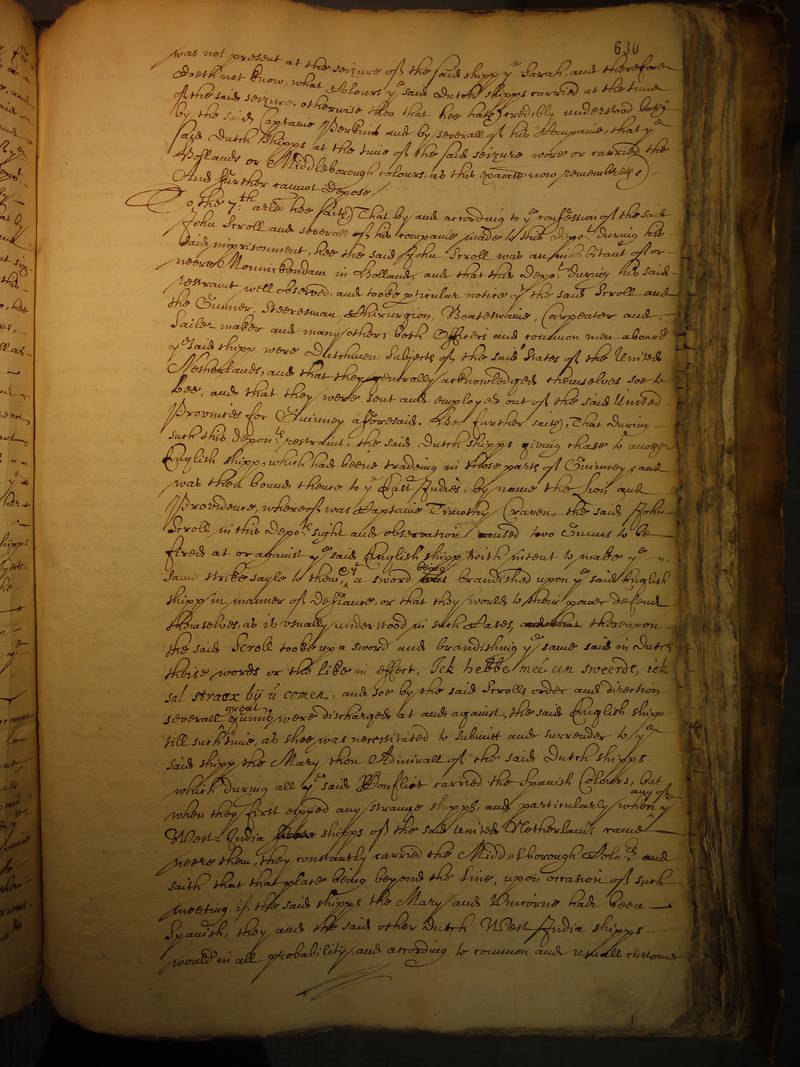 630
was not present at the seizure of the said shipp ye Sarah, and therefore
doeth not know, what Colours ye said Dutch shipps carried at the time
of the said seizure, otherwise then that hee hath credibly understood both
by the said Captaine Perkins and by severall of his Companie, that ye
said Dutch shipps at the time of the said seizure wore or carried the
Hollands or Middleborough colours, as this examte now remembreth
And further cannot depose
To the 7th arle hee saith That by and according to ye confession of the said
John Scroll and severall of his companie made to this Depot during his
said imprisonment, hee the said John Scroll was an inhabitant of or
neere Monnickendam in Holland, and that this Depot during his said
restraint well observed, and tooke pticular notice yt the said Scroll and
the Gunner, Steeresman Chirurgion, Boatswaine, Carpenter and
Saile maker and many others both Officers and common men aboard
ye said shipp were Dutchmen Subjects of the said States of the United
Netherlands, and that they generally acknowledged themselves soe to
bee, and that they were sent and employed out of the said United
Provinces for Guinney aforesaid. Hee further saith, That during
such this deponts restraint, the said Dutch shipps giving chase to another
English shipp, which had beene tradeing in those parts of Guinney, and
was then bound thence to ye East Indies, by name the Lion and
Providence, whereof was Captaine Timothy Craven, the said John
Scroll in this Depots sight and observation caused two Gunns to be
fired at or against ye said English shipp with intent to make ye
same strike sayle to them, & a sword being brandished upon ye said English
shipp in manner of defiance, or that they would to their power defend
themselves, as is usually understood in such Cases, thereupon
the said Scroll tooke up a sword and brandishing ye same said in Dutch
theise words or the like in effect, Ick hebbe mee een sweerdt, ick
sal straex bÿ ú comen, and soe by the said Scrolls order and direction
severall great gunns were discharged at and against the said English shipp
till such time, as shee was necessitated to submitt and surrender to ye
said shipp the Mary then Admirall of the said Dutch shipps
which during all ye said Conflict carried the Spanish Colours, but
when they first espyed any strange shipps, and particularly when any of ye
West-India shipps of the said United Netherlands came
neere them, they constantly carried the Middelborough Colors and
saith that that place being beyond the Line, upon occasion of such
meeting, if the said shipps the Mary and Unicorne had been
Spanish, they and the said other Dutch West India shipps
would in all probability, and according to common and usuall custome